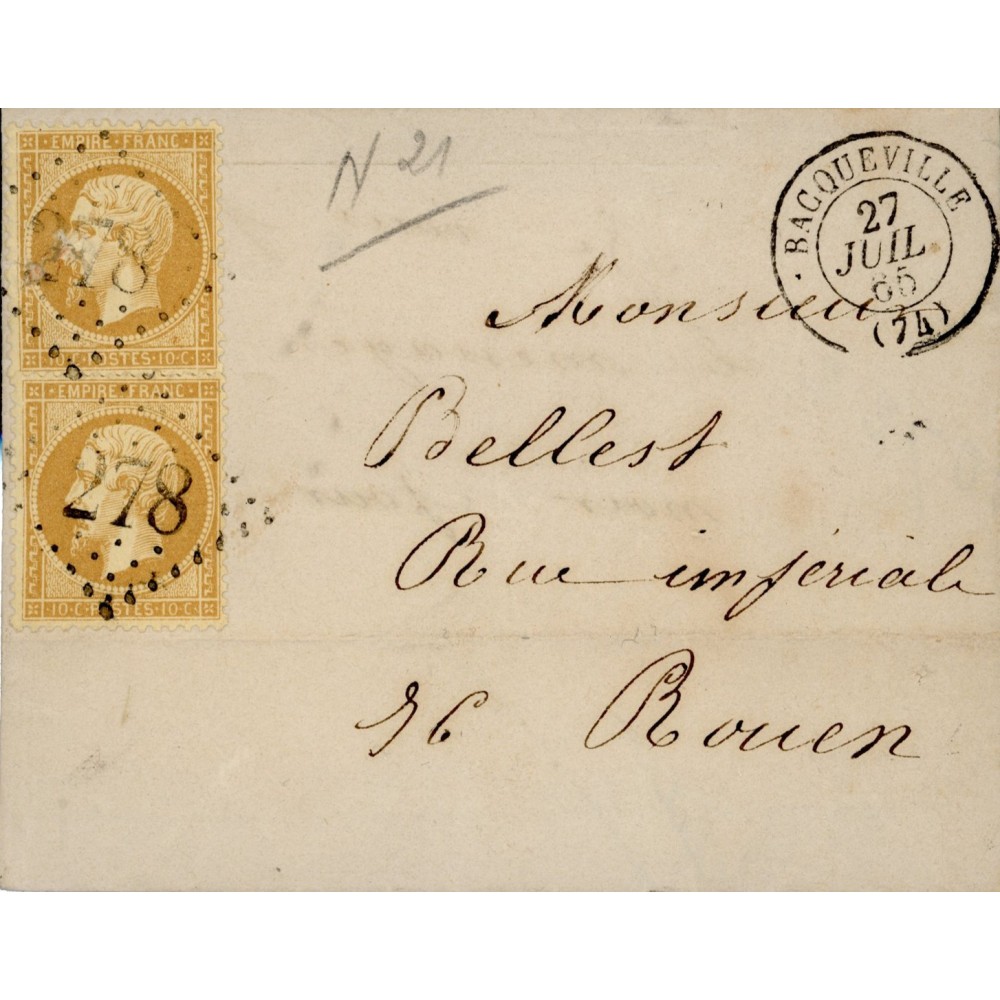 EMPIRE·FRANC·
278
10·C·POSTES·10·C·
EMPIRE·FRANC·
278
10·C·POSTES·10·C·
N 21
BACQUEVILLE
27
JUIL
65
(74)
Monsieur
Bellest
Rue impériale
96 Rouen